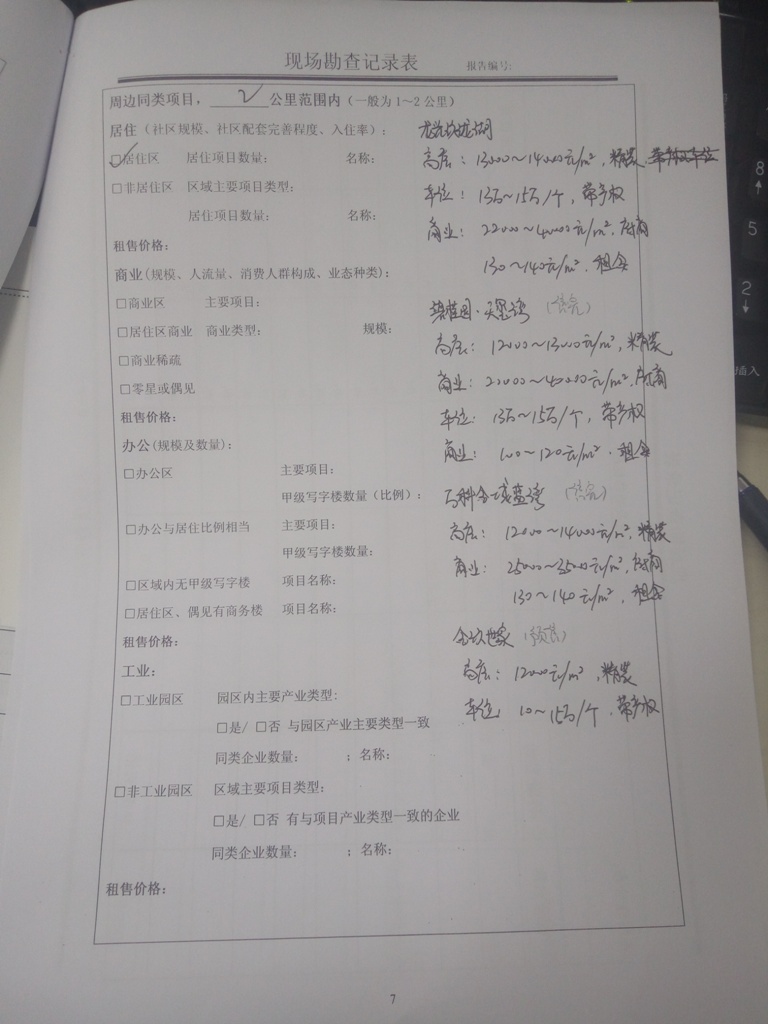 现场勘查记录表 报告编号:
周边同类项目，2公里范围内（一般为1～2公里）
居住（社区规模、社区配套完善程度、入住率）: 龙光玖珑湖
☑居住区 居住项目数量: 名称: 高层: 13000～14000元/m², 精装
□非居住区 区域主要项目类型: 车位: 13万～15万/个, 带产权
居住项目数量: 名称: 商业: 22000～40000元/m², 存商
租售价格: 130～140元/m². 租金
商业(规模、人流量、消费人群构成、业态种类):
□商业区 主要项目: 碧桂园·天玺湾 (售完)
□居住区商业 商业类型: 规模: 高层: 12000～13000元/m², 精装
□商业稀疏 商业: 20000～40000元/m²,
□零星或偶见 车位: 13万～15万/个, 带产权
租售价格: 商业: 100～120元/m². 租金
办公(规模及数量):
□办公区 主要项目: 万科金域蓝湾 (售完)
甲级写字楼数量（比例）:
□办公与居住比例相当 主要项目: 高层: 12000～14000元/m², 精装
甲级写字楼数量: 商业: 25000～35000元/m²,
□区域内无甲级写字楼 项目名称: 130～140元/m², 租金
□居住区、偶见有商务楼 项目名称:
租售价格: (预售)
工业: 高层: 12000元/m², 精装
□工业园区 园区内主要产业类型: 车位: 10～15万/个. 带产权
□是/ □否 与园区产业主要类型一致
同类企业数量: ；名称:
□非工业园区 区域主要项目类型:
□是/ □否 有与项目产业类型一致的企业
同类企业数量: ；名称:
租售价格:
7
8
5
2
插入